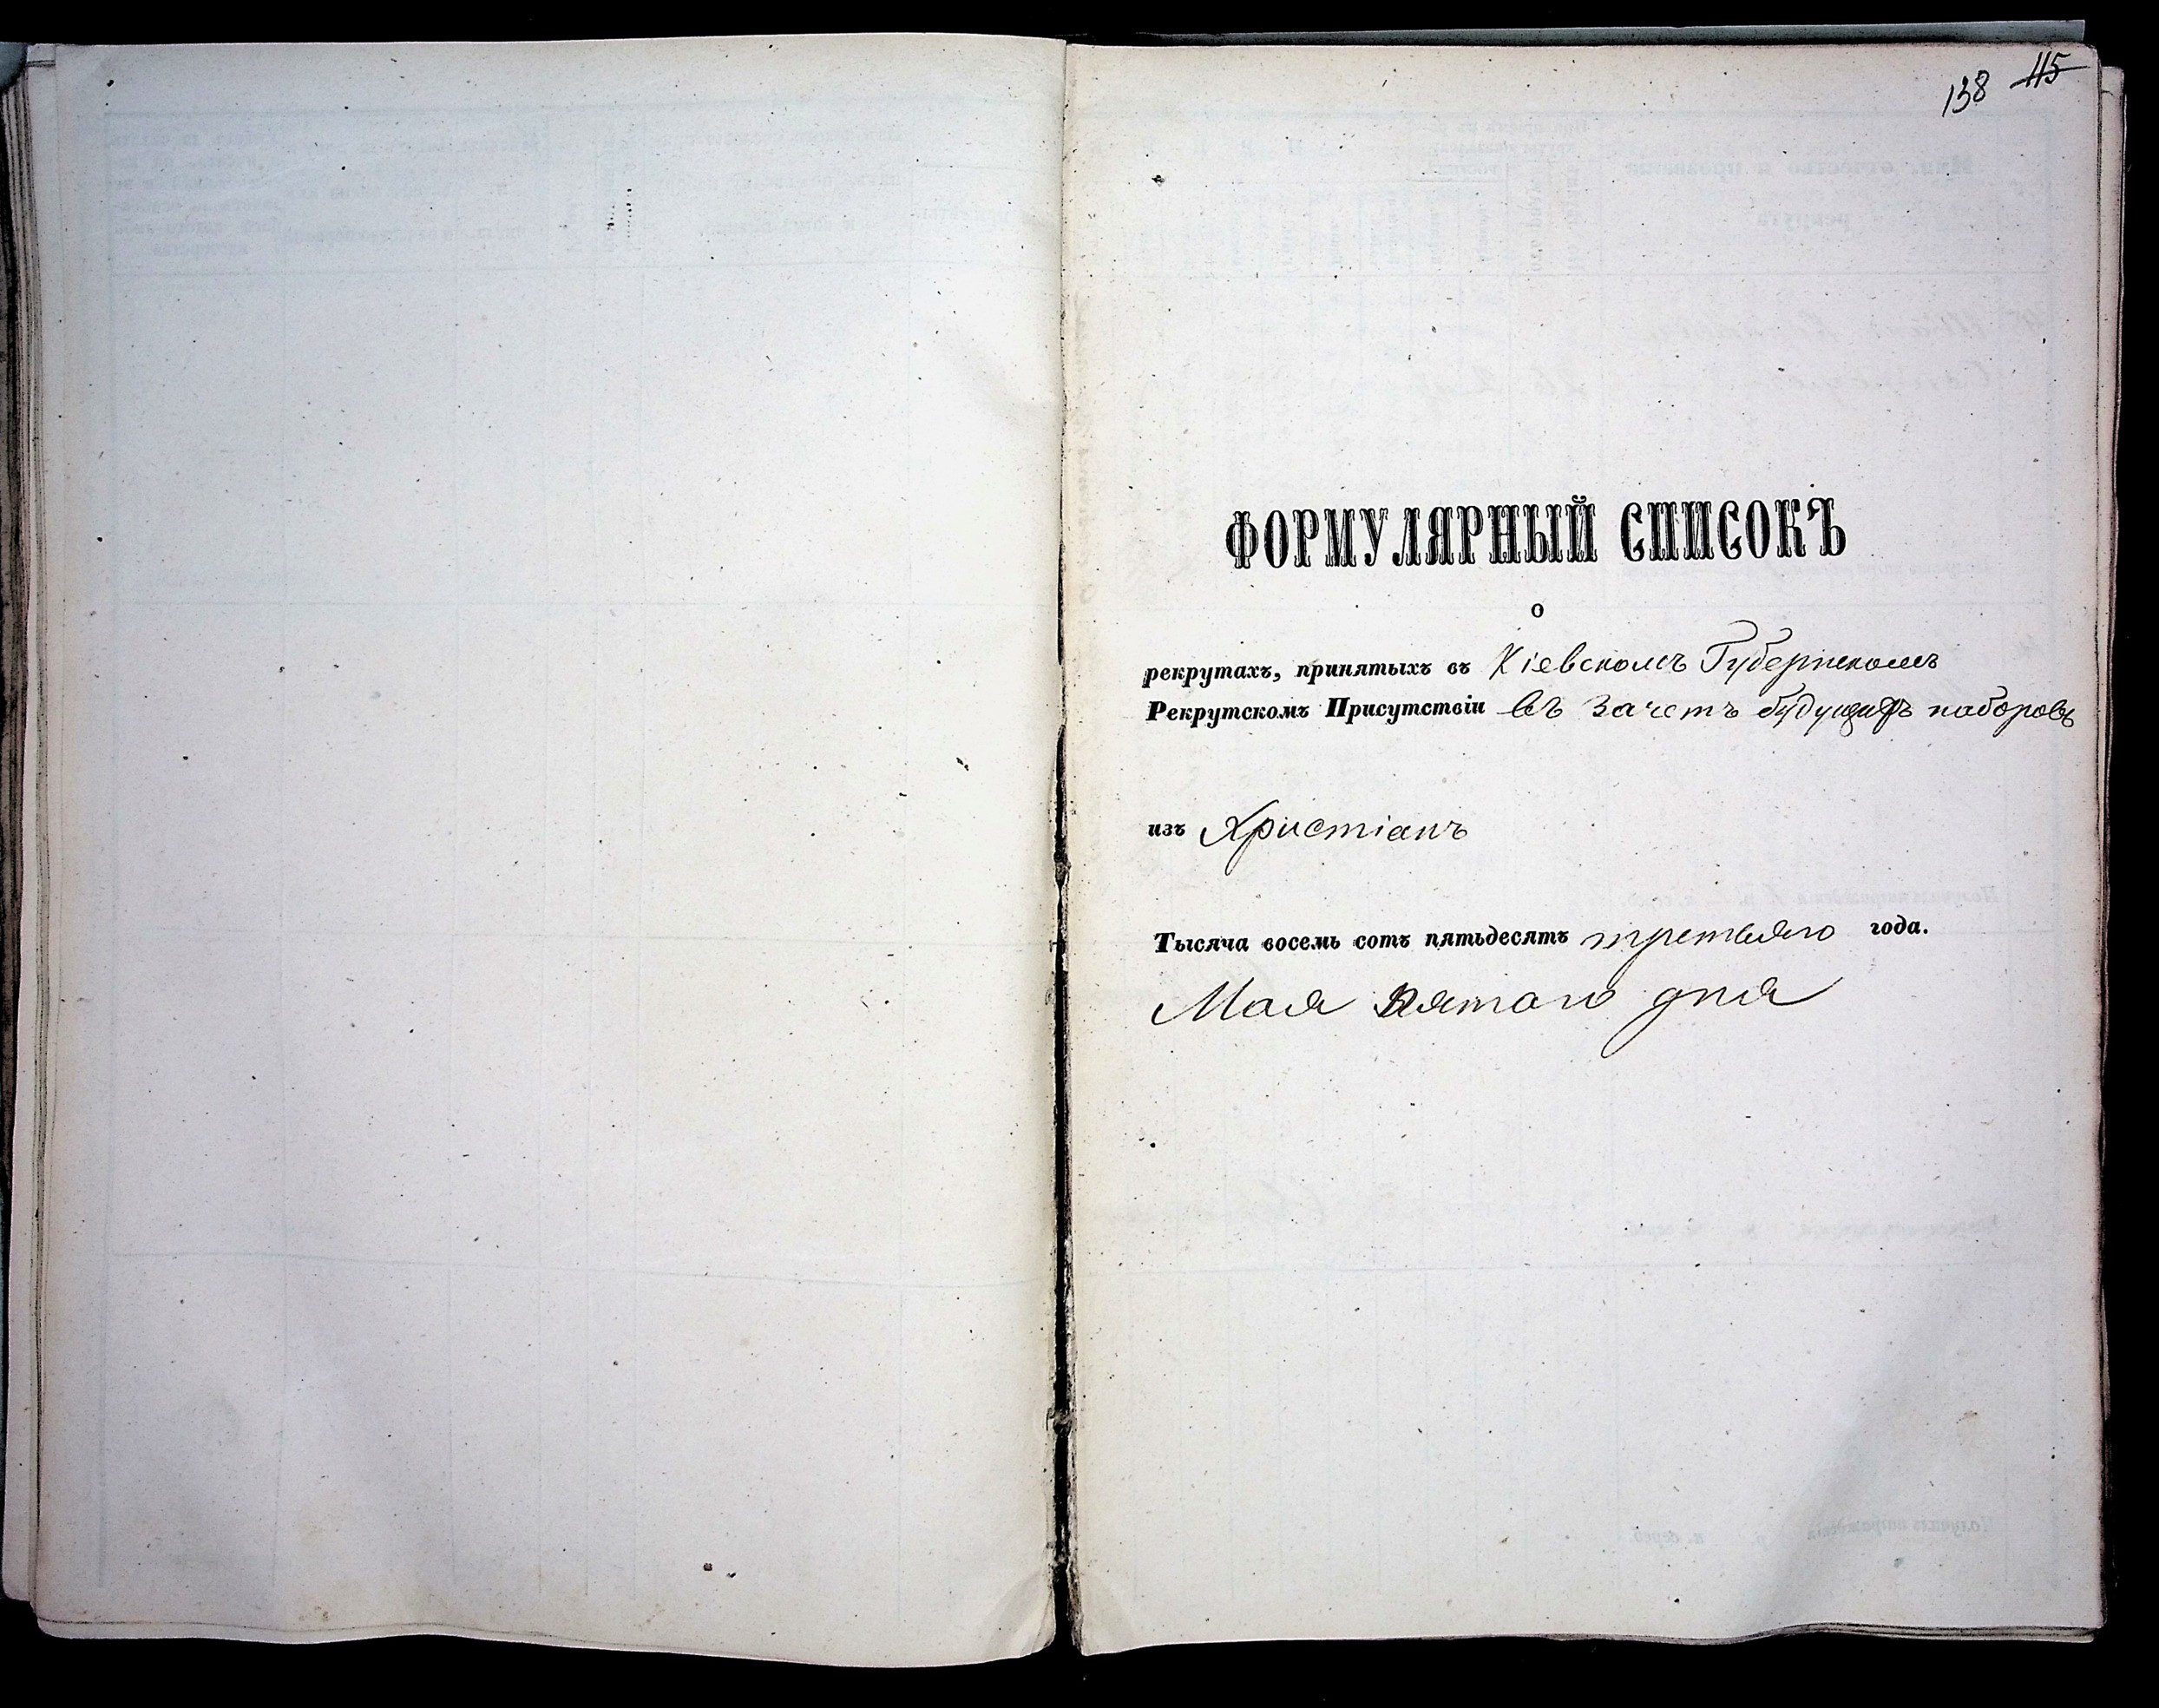 138 115
ФОРМУЛЯРНЫЙ СПИСОКЪ
о
рекрутахъ, принятыхъ въ Кіевскомъ Губернскомъ
Рекрутскомъ Присутствіи въ зачетъ будущихъ наборовъ
изъ Христіанъ
Тысяча восемь сотъ пятьдесятъ третьяго года.
Мая пятаго дня